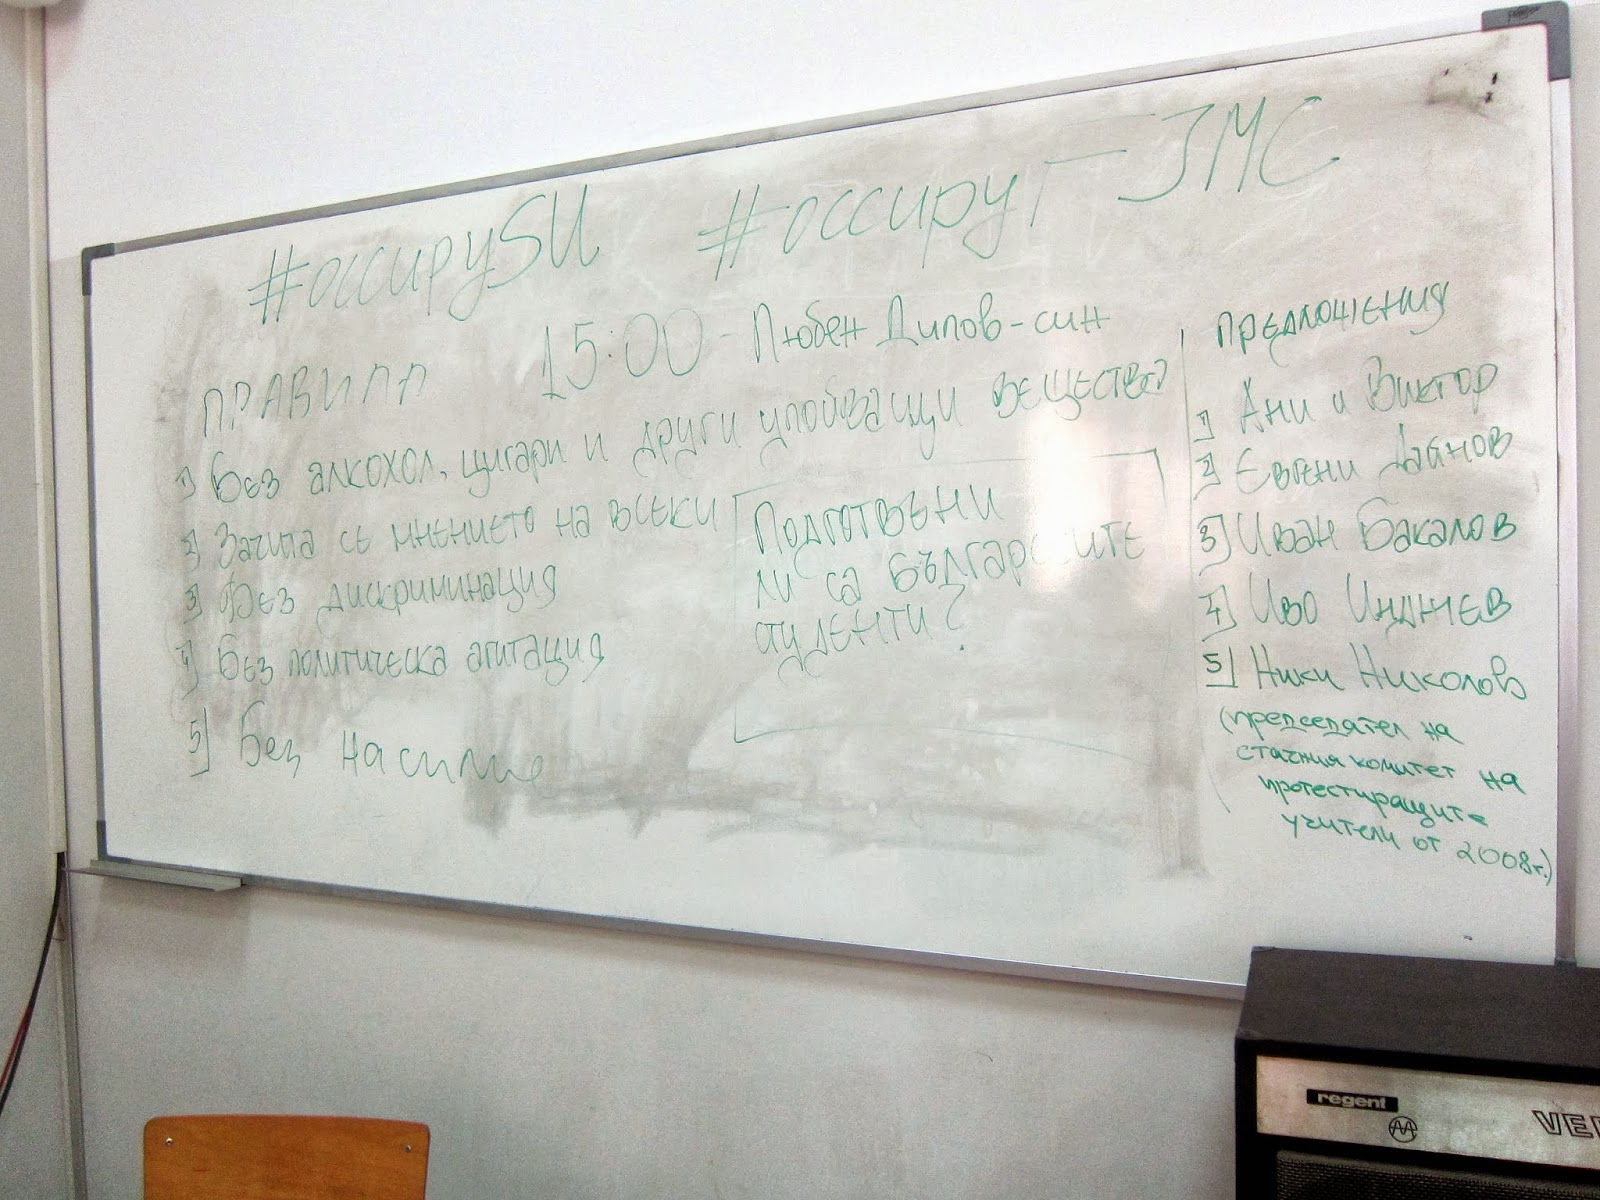 #occupySU #occupyFJMC
15:00 - Любен Дилов-син
ПРАВИЛА
1) Без алкохол, цигари и други упойващи вещества
2) Зачита се мнението на всеки
3) Без дискриминация
4) Без политическа агитация
5) Без насилие
Подготвени
ли са българските
студенти?
Предложения
1) Ани и Виктор
2) Евгени Дайнов
3) Иван Бакалов
4) Иво Инджев
5) Ники Николов
(председател на
стачния комитет на
протестиращите
учители от 2008г.)
regent